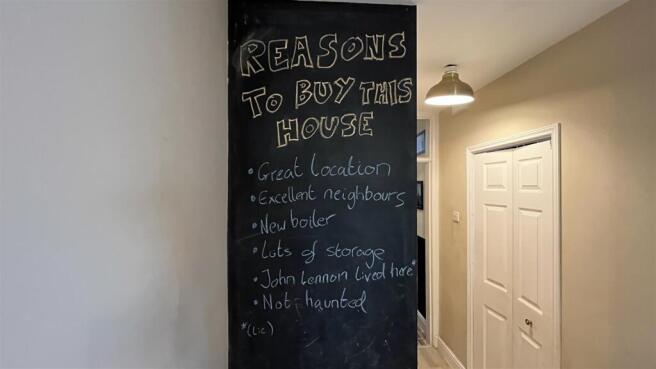 REASONS
TO BUY THIS
HOUSE
• Great location
• Excellent neighbours
• New boiler
• Lots of storage
• John Lennon lived here*
• Not haunted
*(Lie)